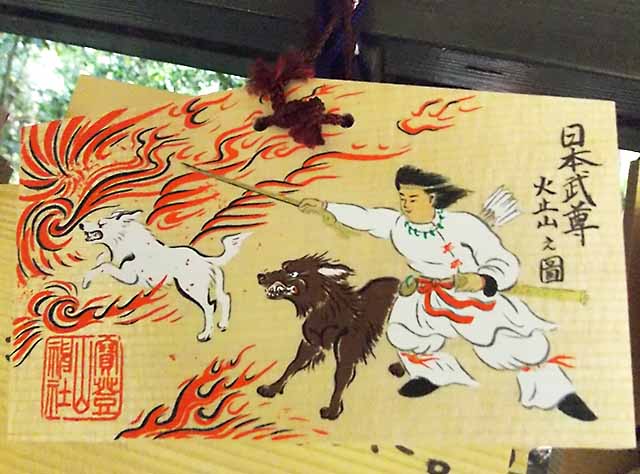 日本武尊
火止山之圖
寳登
山
神社